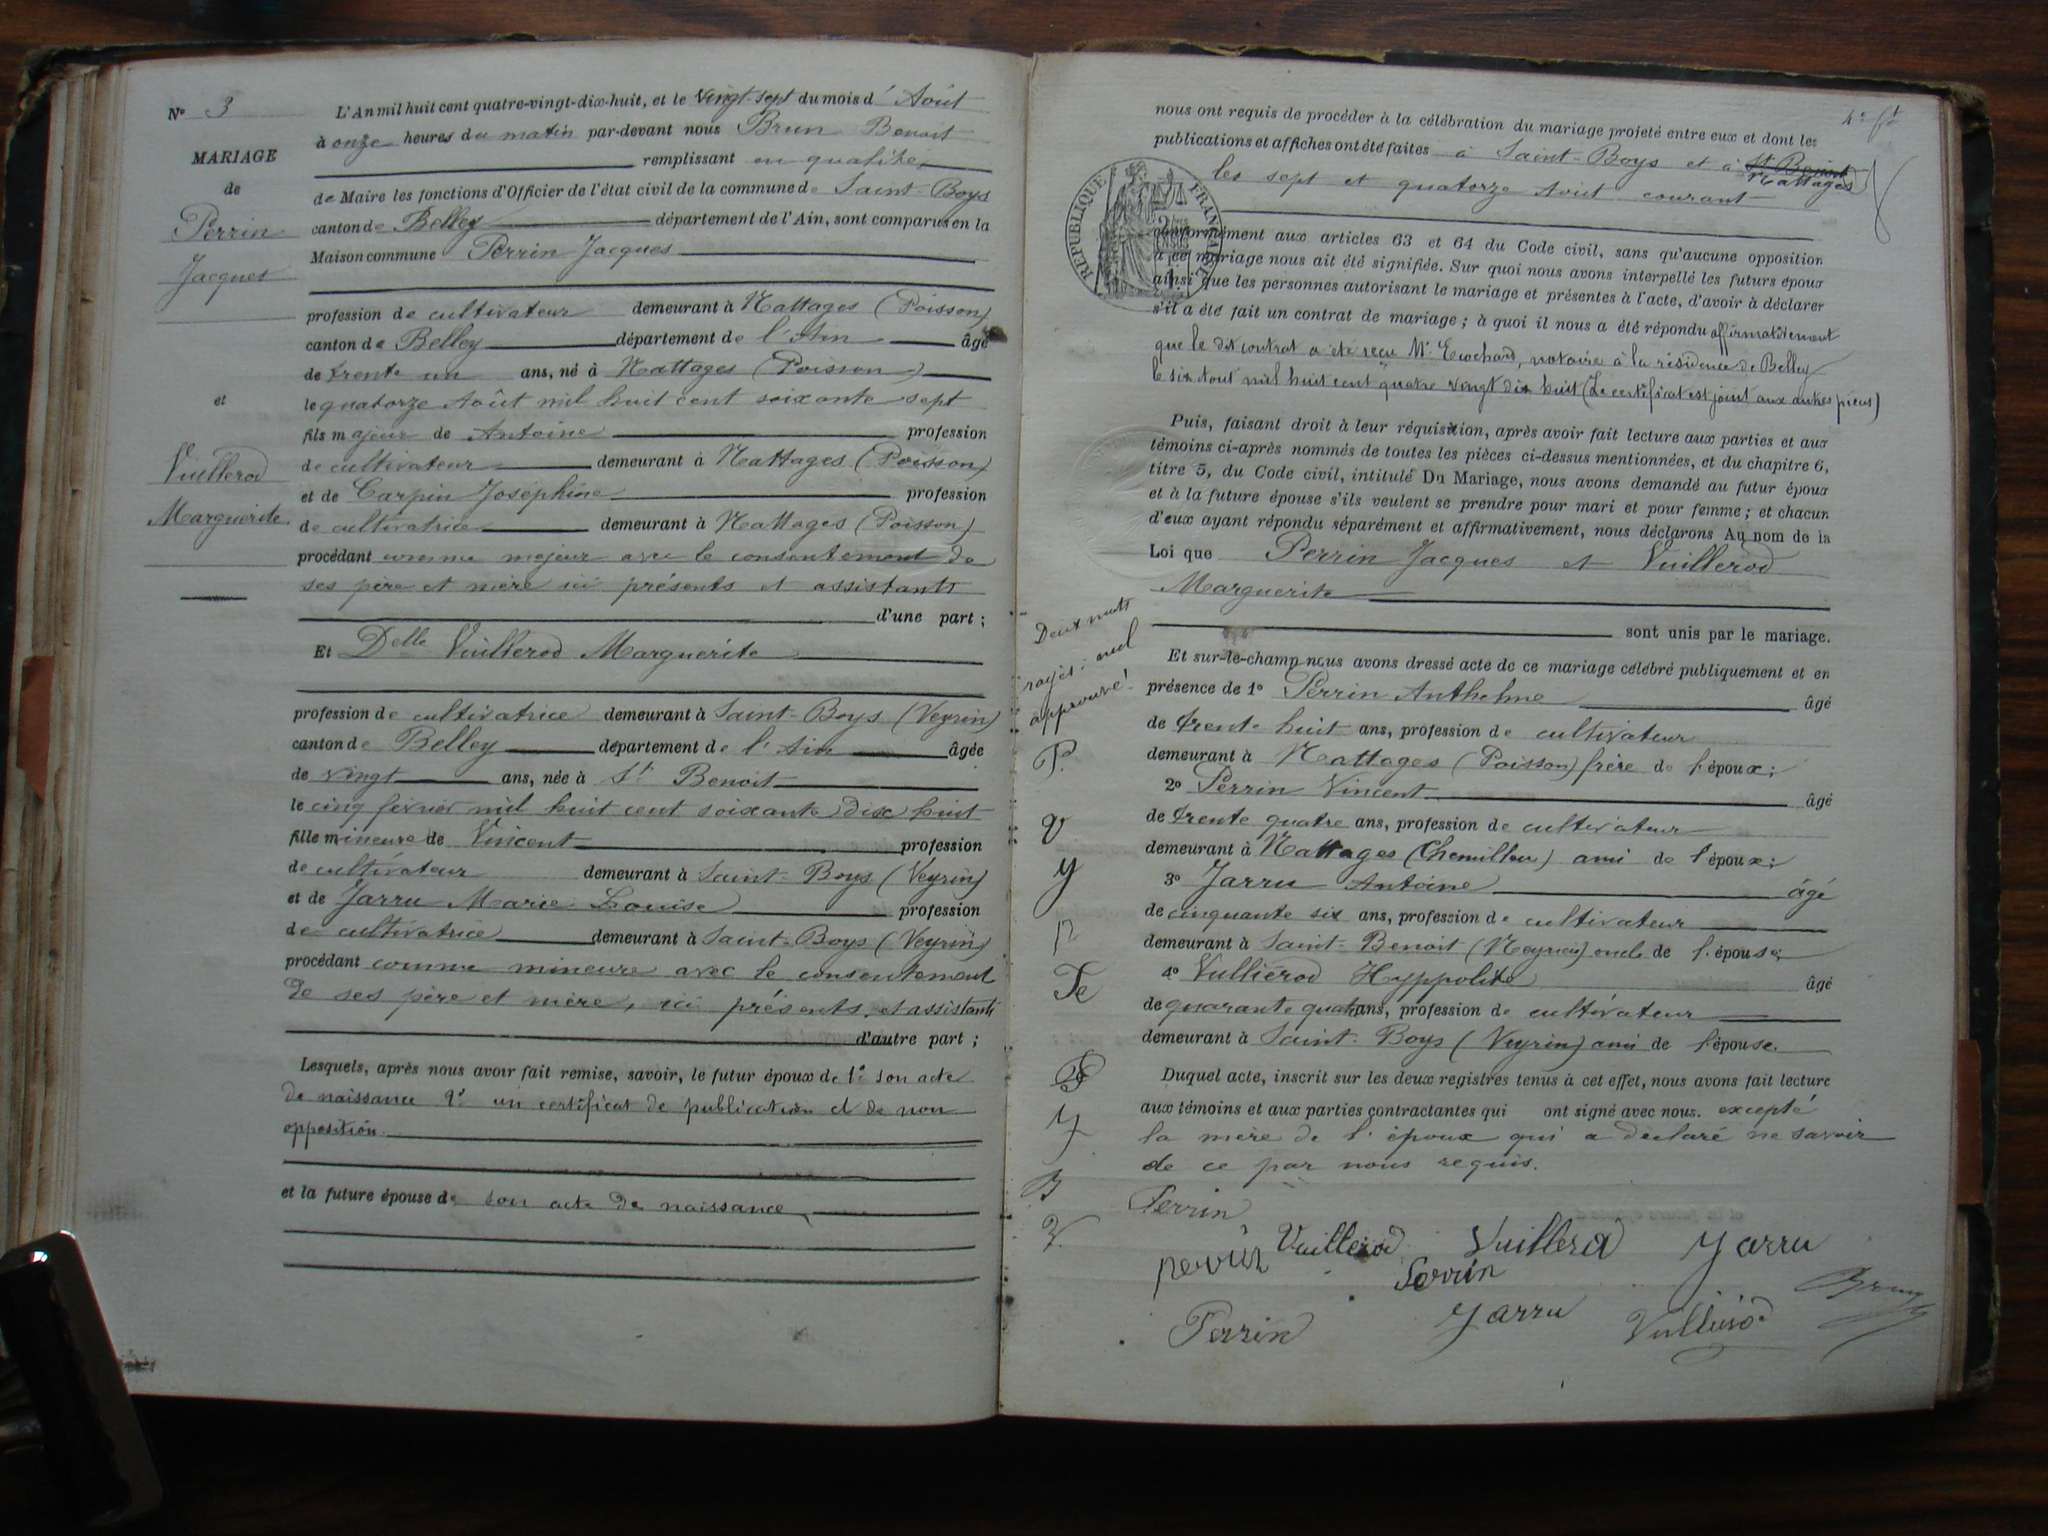 N° 3
MARIAGE
de
Perrin
Jacques
et
Vuillerod
Marguerite
L'An mil huit cent quatre-vingt-dix-huit, et le vingt-sept du mois d' Août
à onze heures du matin par-devant nous Brun Benoit
remplissant en qualité
de Maire les fonctions d'Officier de l'état civil de la commune de Saint-Boys
canton de Belley département de l'Ain, sont comparus en la
Maison commune Perrin Jacques
profession de cultivateur demeurant à Nattages (Poisson)
canton de Belley département de l'Ain âgé
de trente un ans, né à Nattages (Poisson)
le quatorze Août mil huit cent soixante sept
fils majeur de Antoine profession
de cultivateur demeurant à Nattages (Poisson)
et de Carpin Joséphine profession
de cultivatrice demeurant à Nattages (Poisson)
procédant comme majeur avec le consentement de
ses père et mère ici présents et assistants
d'une part ;
Et Delle Vuillerod Marguerite
profession de cultivatrice demeurant à Saint-Boys (Veyrin)
canton de Belley département de l'Ain âgée
de vingt ans, née à St Benoit
le cinq février mil huit cent soixante dix huit
fille mineure de Vincent profession
de cultivateur demeurant à Saint-Boys (Veyrin)
et de Jarru Marie Louise profession
de cultivatrice demeurant à Saint-Boys (Veyrin)
procédant comme mineure avec le consentement
de ses père et mère, ici présents et assistants
d'autre part ;
Lesquels, après nous avoir fait remise, savoir, le futur époux de 1° son acte
de naissance 2° un certificat de publication et de non
opposition.
et la future épouse de son acte de naissance
4e ft
nous ont requis de procéder à la célébration du mariage projeté entre eux et dont les
publications et affiches ont été faites à Saint-Boys et à St Benoit
Nattages
les sept et quatorze Août courant
RÉPUBLIQUE FRANÇAISE
conformément aux articles 63 et 64 du Code civil, sans qu'aucune opposition
à ce mariage nous ait été signifiée. Sur quoi nous avons interpellé les futurs époux
ainsi que les personnes autorisant le mariage et présentes à l'acte, d'avoir à déclarer
s'il a été fait un contrat de mariage ; à quoi il nous a été répondu affirmativement
que le dit contrat a été reçu Me notaire à la résidence de Belley
le six Août mil huit cent quatre vingt dix huit (Le certificat est joint aux autres pièces)
Puis, faisant droit à leur réquisition, après avoir fait lecture aux parties et aux
témoins ci-après nommés de toutes les pièces ci-dessus mentionnées, et du chapitre 6,
titre 5, du Code civil, intitulé Du Mariage, nous avons demandé au futur époux
et à la future épouse s'ils veulent se prendre pour mari et pour femme ; et chacun
d'eux ayant répondu séparément et affirmativement, nous déclarons Au nom de la
Loi que Perrin Jacques et Vuillerod
Marguerite
sont unis par le mariage.
Deux mots
rayés: nul
approuvé!
P.
V
y
n
Te
P
J
B
V.
Et sur-le-champ nous avons dressé acte de ce mariage célébré publiquement et en
présence de 1° Perrin Anthelme âgé
de trente huit ans, profession de cultivateur
demeurant à Nattages (Poisson) frère de l'époux ;
2° Perrin Vincent âgé
de trente quatre ans, profession de cultivateur
demeurant à Nattages (Chemillieu) ami de l'époux ;
3° Jarru Antoine âgé
de cinquante six ans, profession de cultivateur
demeurant à Saint-Benoit (Meyrieu) oncle de l'épouse
4° Vulliérod Hyppolite âgé
de quarante quatre ans, profession de cultivateur
demeurant à Saint-Boys (Veyrin) ami de l'épouse.
Duquel acte, inscrit sur les deux registres tenus à cet effet, nous avons fait lecture
aux témoins et aux parties contractantes qui ont signé avec nous. excepté
la mère de l'époux qui a déclaré ne savoir
de ce par nous requis.
Perrin
perrin Vuillerod Vuillerod Jarru
Perrin
Brun
Perrin Jarru Vulliérod